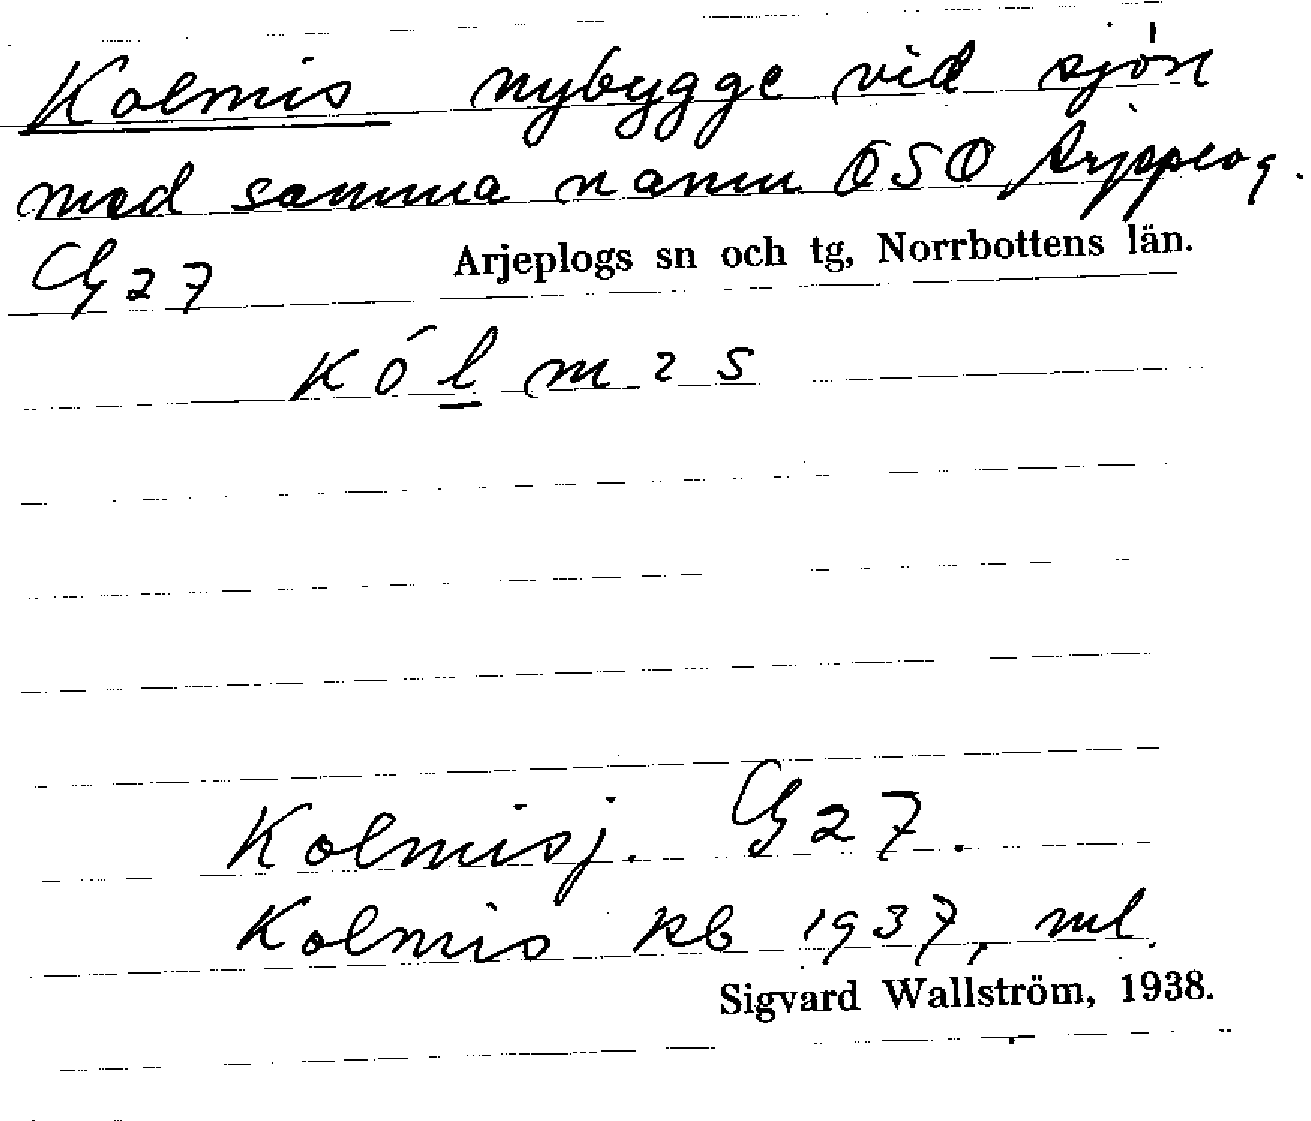 Kolmis nybygge vid sjön
med samma namn OSO Arjeplog.
G 27
Arjeplogs sn och tg, Norrbottens län.
kólmıs
Kolmisj. G 27.
Kolmis kb 1937, ml.
Sigvard Wallström, 1938.